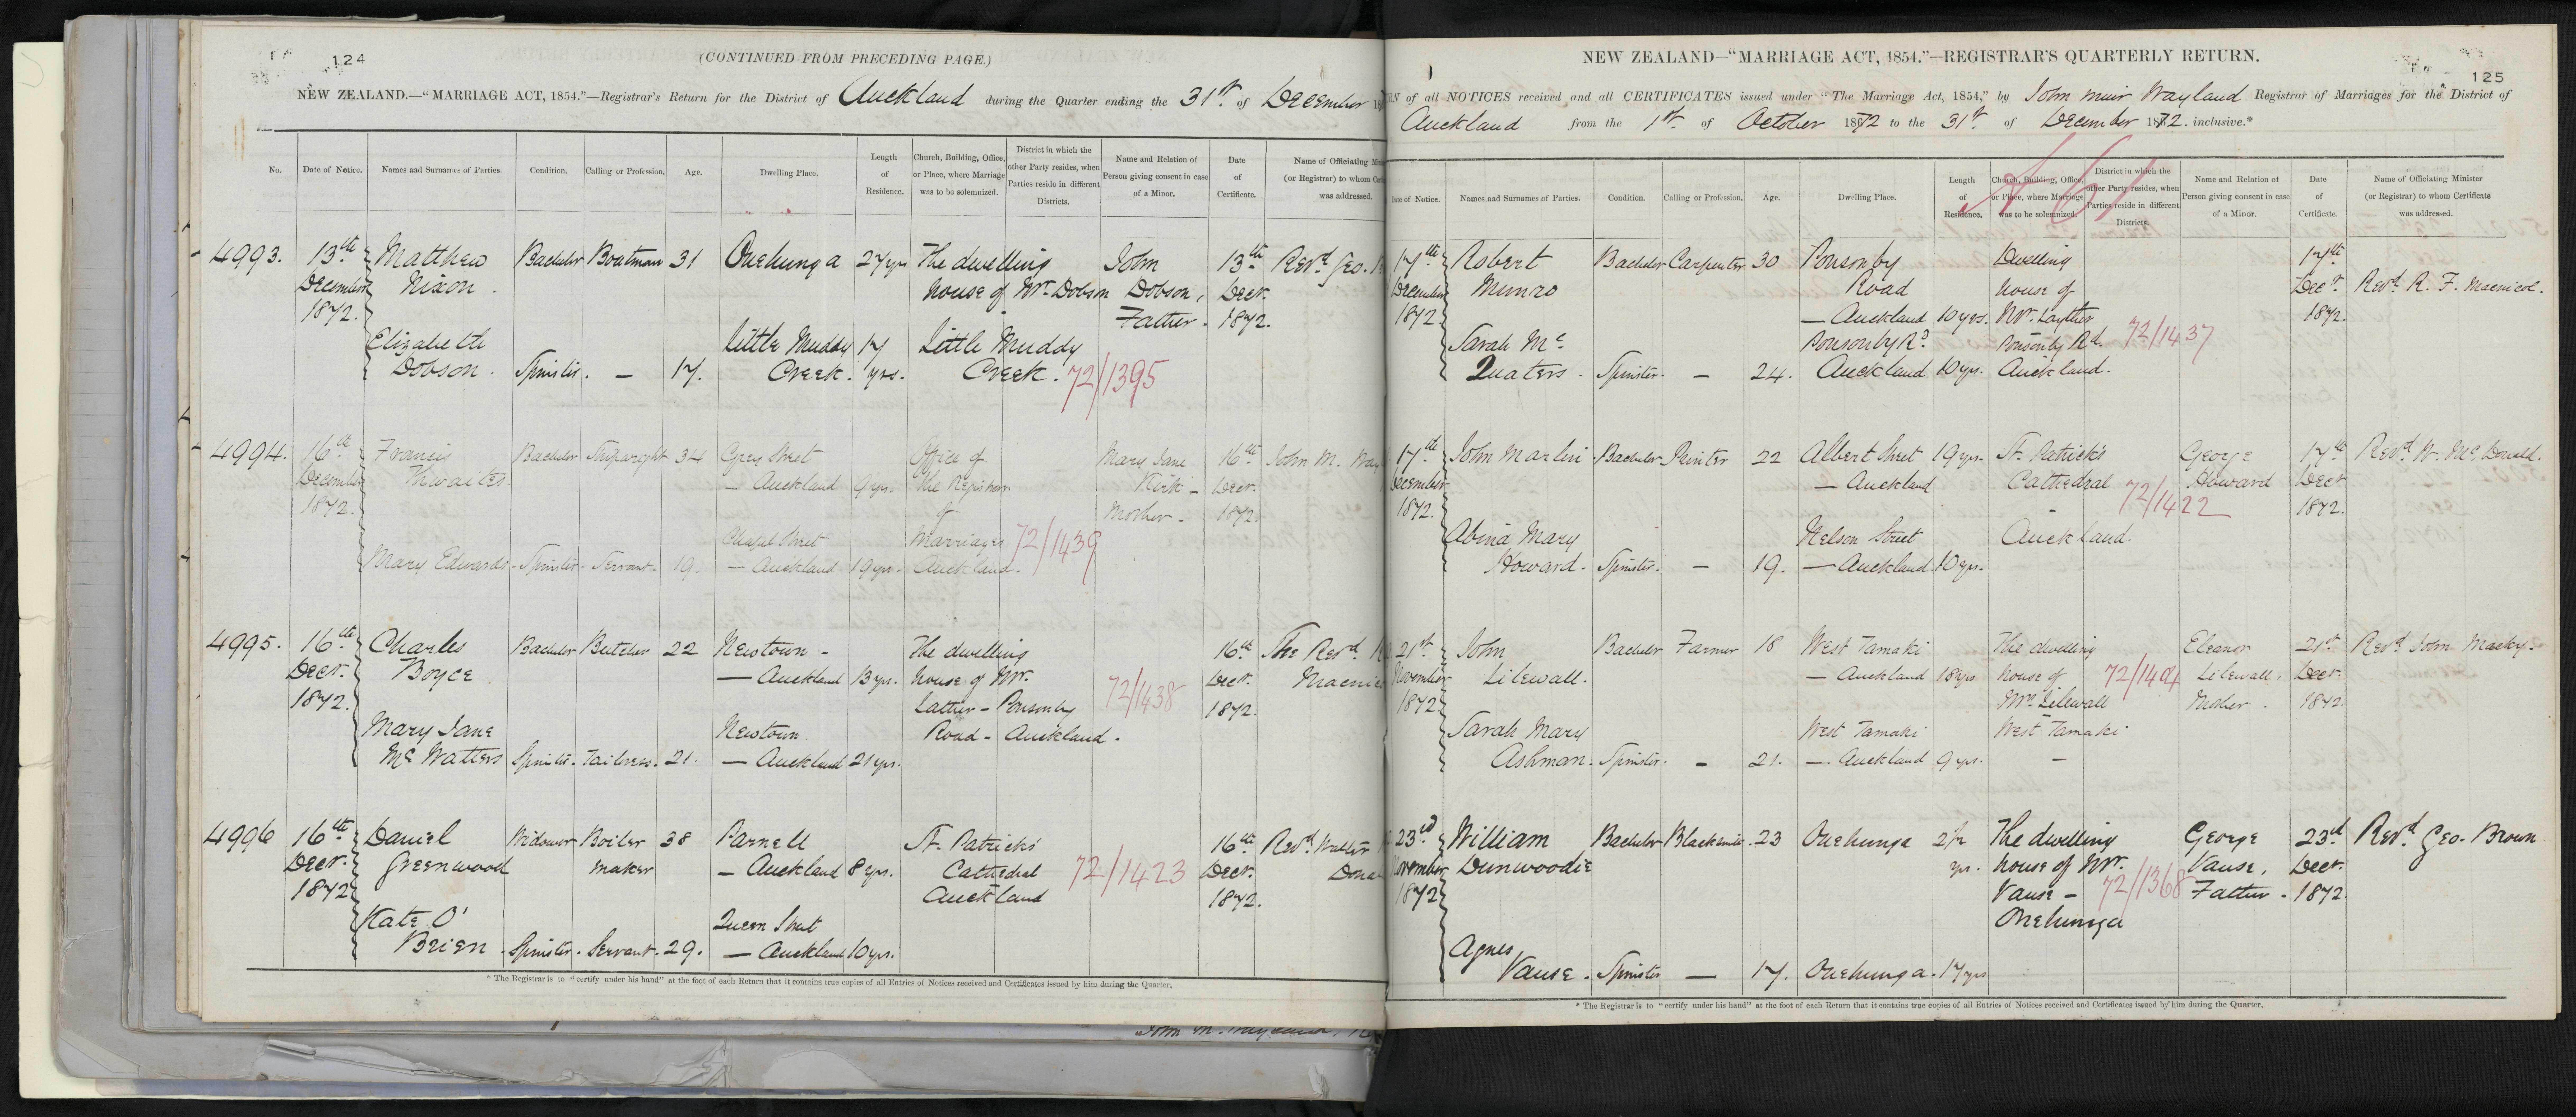 124
(CONTINUED FROM PRECEDING PAGE.)
NEW ZEALAND.—"MARRIAGE ACT, 1854."—Registrar's Return for the District of Auckland during the Quarter ending the 31st of December
No. Date of Notice. Names and Surnames of Parties. Condition. Calling or Profession. Age. Dwelling Place. Length of Residence. Church, Building, Office, or Place, where Marriage was to be solemnized. District in which the other Party resides, when Parties reside in different Districts. Name and Relation of Person giving consent in case of a Minor. Date of Certificate. Name of Officiating (or Registrar) to whom was addressed.
4993. 13th Matthew Bachelor Boatman 31 Onehunga 27 yrs The dwelling John 13th Revd Geo.
December Nixon. house of Mr. Dobson Dobson, Decr.
1872. Father. 1872.
Elizabeth Little Muddy 17 Little Muddy
Dobson. Spinster. — 17. Creek. yrs. Creek. 72/1395
4994. 16th Francis Bachelor Shipwright 34 Grey Street Office of Mary Jane 16th John M.
December Thwaites. — Auckland 9 yrs. the Registrar Kirk — Decr.
1872. of Mother — 1872.
Chapel Street Marriages 72/1439
Mary Edwards - Spinster - Servant - 19. — Auckland 19 yrs. Auckland.
4995. 16th Charles Bachelor Butcher 22 Newtown - The dwelling 16th The Revd.
Decr. Boyce — Auckland 13 yrs. house of Mr. 72/1438 Decr.
1872. Lather - Ponsonby 1872.
Mary Jane Newtown Road - Auckland.
Mc Watters Spinster. Tailoress. 21. — Auckland 21 yrs.
4996 16th Daniel Widower Boiler 38 Parnell St. Patrick's 16th Revd Walter
Decr. Greenwood maker — Auckland 8 yrs. Cathedral 72/1423 Decr.
1872 Auckland 1872.
Kate O' Queen Street
Brien. Spinster. Servant. 29. — Auckland 10 yrs.
* The Registrar is to "certify under his hand" at the foot of each Return that it contains true copies of all Entries of Notices received and Certificates issued by him during the Quarter.
NEW ZEALAND—"MARRIAGE ACT, 1854."—REGISTRAR'S QUARTERLY RETURN.
125
of all NOTICES received and all CERTIFICATES issued under "The Marriage Act, 1854," by John Muir Wayland Registrar of Marriages for the District of
Auckland from the 1st of October 1872 to the 31st of December 1872. inclusive.*
Date of Notice. Names and Surnames of Parties. Condition. Calling or Profession. Age. Dwelling Place. Length of Residence. Church, Building, Office, or Place, where Marriage was to be solemnized. District in which the other Party resides, when Parties reside in different Districts. Name and Relation of Person giving consent in case of a Minor. Date of Certificate. Name of Officiating Minister (or Registrar) to whom Certificate was addressed.
17th Robert Bachelor Carpenter 30 Ponsonby Dwelling 17th
December Munro Road house of Decr. Revd. R. F. Macnicol.
1872. — Auckland 10 yrs. Mr. Layther 1872.
Sarah Mc Ponsonby Rd. Ponsonby Rd. 72/1437
Quaters. Spinster. — 24. Auckland 10 yrs. Auckland.
17th John Martin Bachelor Printer 22 Albert Street 19 yrs. St. Patrick's George 17th Revd W. McDonald.
December — Auckland Cathedral Howard Decr
1872. 72/1422 1872.
Abina Mary Nelson Street Auckland.
Howard. Spinster. — 19. — Auckland 10 yrs.
21st John Bachelor Farmer 18 West Tamaki The dwelling Eleanor 21st Revd John Macky.
November Lilewall. — Auckland 18 yrs house of 72/1404 Lilewall. Decr.
1872 Mrs Lilewall Mother. 1872
Sarah Mary West Tamaki West Tamaki
Ashman. Spinster. — 21. — Auckland 9 yrs. —
23rd William Bachelor Blacksmith. 23 Onehunga 2½ The dwelling George 23d Revd. Geo. Brown
November Dunwoodie yrs. house of Mr. Vause, Decr.
1872 Vause — 72/1368 Father. 1872.
Onehunga
Agnes
Vause. Spinster — 17. Onehunga. 17 yrs
* The Registrar is to "certify under his hand" at the foot of each Return that it contains true copies of all Entries of Notices received and Certificates issued by him during the Quarter.